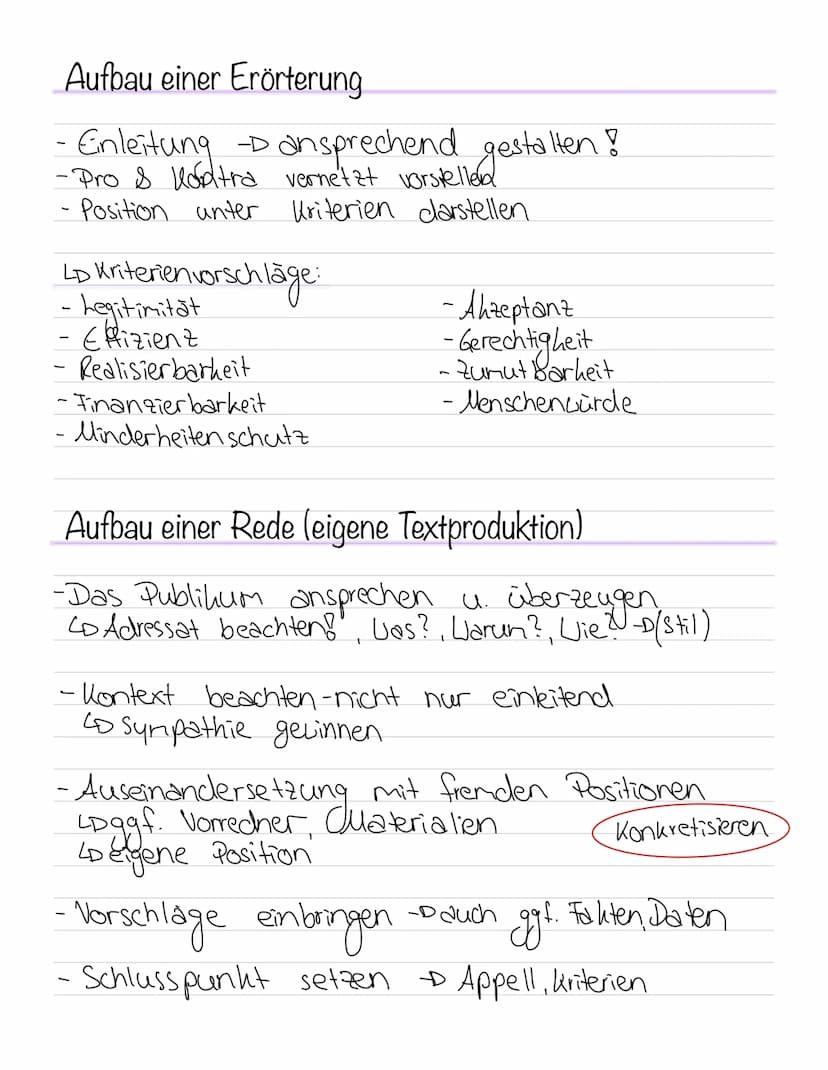 Aufbau einer Erörterung
- Einleitung → ansprechend gestalten!
- Pro & Kontra vernetzt vorstellen
- Position unter Kriterien darstellen
↳ Kriterienvorschläge:
- Legitimität
- Effizienz
- Realisierbarkeit
- Finanzierbarkeit
- Minderheitenschutz
- Akzeptanz
- Gerechtigkeit
- Zumutbarkeit
- Menschenwürde
Aufbau einer Rede (eigene Textproduktion)
- Das Publikum ansprechen u. überzeugen
↳ Adressat beachten!, Was?, Warum?, Wie? → (Stil)
- Kontext beachten - nicht nur einleitend
↳ Sympathie gewinnen
- Auseinandersetzung mit fremden Positionen
↳ ggf. Vorredner, Materialien
Konkretisieren
↳ eigene Position
- Vorschläge einbringen → auch ggf. Fakten, Daten
- Schlusspunkt setzen → Appell, Kriterien